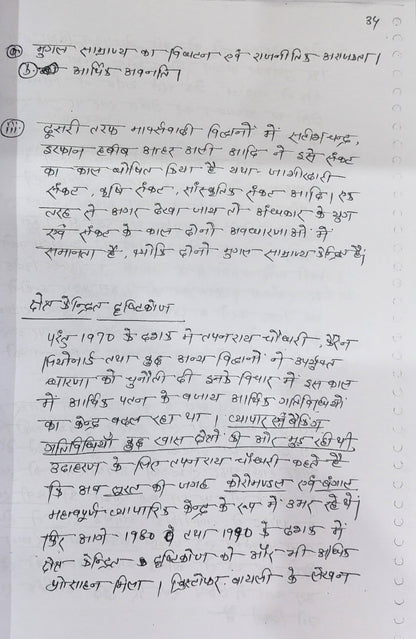 34
मुगल साम्राज्य का विघटन एवं राजनीतिक अराजकता।
आर्थिक अवनति।
(iii) दूसरी तरफ मार्क्सवादी विद्वानों में सतीश चन्द्र,
इरफान हबीब अतहर अली आदि ने इसे संकट
का काल घोषित किया है यथा जागीरदारी
संकट, कृषि संकट, सांस्कृतिक संकट आदि। एक
तरह से अगर देखा जाय तो अंधकार के युग
एवं संकट के काल दोनो अवधारणाओं में
समानता है, क्योंकि दोनो मुगल साम्राज्य केन्द्रित हैं।
क्षेत्र केन्द्रित दृष्टिकोण
परंतु 1970 के दशक में तपनराय चौधरी, केरेन
लियोनार्ड तथा कुछ अन्य विद्वानों ने उपर्युक्त
धारणा को चुनौती दी इनके विचार में इस काल
में आर्थिक पतन के बजाय आर्थिक गतिविधियों
का केन्द्र बदल रहा था। व्यापार एवं बैंकिंग
गतिविधियाँ कुछ खास क्षेत्रों की ओर मुड़ रही थी
उदाहरण के लिए तपनराय चौधरी कहते हैं
कि अब सूरत की जगह कोरोमण्डल एवं बंगाल
महत्वपूर्ण व्यापारिक केन्द्र के रूप में उभर रहे थे।
फिर आगे 1980 तथा 1990 के दशक में
क्षेत्र केन्द्रित दृष्टिकोण को और भी अधिक
प्रोत्साहन मिला। क्रिस्टोफर बायली के लेखन